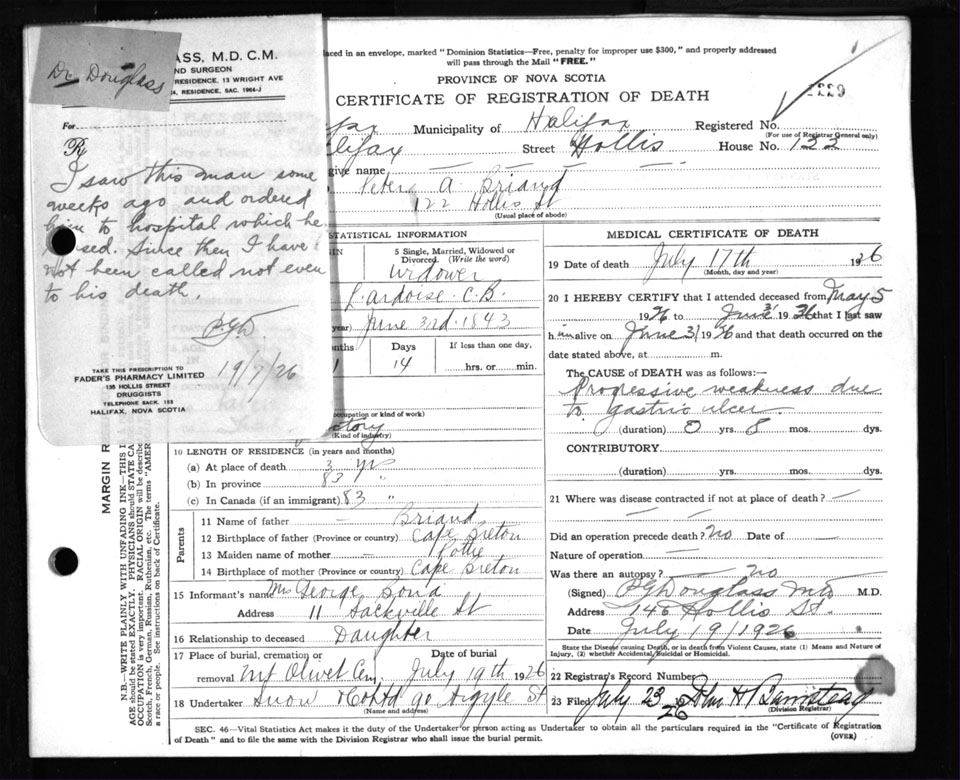 Dr. Douglass
ASS, M.D. C.M.
ND SURGEON
RESIDENCE, 13 WRIGHT AVE
4, RESIDENCE, SAC. 1964-J
For
R
I saw this man some
weeks ago and ordered
him to hospital which he
sed. Since then I have
not been called not even
to his death.
P.G.D.
19/7/26
TAKE THIS PRESCRIPTION TO
FADER'S PHARMACY LIMITED
135 HOLLIS STREET
DRUGGISTS
TELEPHONE SACK. 155
HALIFAX, NOVA SCOTIA
laced in an envelope, marked "Dominion Statistics—Free, penalty for improper use $300," and properly addressed
will pass through the Mail "FREE."
PROVINCE OF NOVA SCOTIA
CERTIFICATE OF REGISTRATION OF DEATH
1229
fax Municipality of Halifax Registered No.
(For use of Registrar General only)
lifax Street Hollis House No. 122
give name
Peter A Briand
122 Hollis St
(Usual place of abode)
STATISTICAL INFORMATION
5 Single, Married, Widowed or
Divorced (Write the word)
Widower
L'ardoise C.B.
year) June 3rd 1843
nths Days If less than one day,
1 14 hrs. or min.
occupation or kind of work)
ctory
(Kind of industry)
10 LENGTH OF RESIDENCE (in years and months)
(a) At place of death 3 yrs
(b) In province 83 "
(c) In Canada (if an immigrant) 83 "
Parents
11 Name of father — Briand
12 Birthplace of father (Province or country) Cape Breton
13 Maiden name of mother — Pottie
14 Birthplace of mother (Province or country) Cape Breton
15 Informant's name Mrs George
Address 11 Sackville St
16 Relationship to deceased Daughter
17 Place of burial, cremation or Date of burial
removal Mt Olivet Cem. July 19th 1926
18 Undertaker Snow & Co Ltd 90 Argyle St
(Name and address)
MEDICAL CERTIFICATE OF DEATH
19 Date of death July 17th 1926
(Month, day and year)
20 I HEREBY CERTIFY that I attended deceased from May 5
1926 to June 3/ 1926 that I last saw
him alive on June 3/ 1926 and that death occurred on the
date stated above, at m.
The CAUSE of DEATH was as follows:—
Progressive weakness due
to gastric ulcer
(duration) 0 yrs. 8 mos. dys.
CONTRIBUTORY
(duration) yrs. mos. dys.
21 Where was disease contracted if not at place of death? —
Did an operation precede death? No Date of —
Nature of operation —
Was there an autopsy? — no
(Signed) P.G. Douglass M.D. M.D.
Address 148 Hollis St.
Date July 19/1926
State the Disease causing Death, or in death from Violent Causes, state (1) Means and Nature of
Injury, (2) whether Accidental, Suicidal or Homicidal.
22 Registrar's Record Number
23 Filed July 23 26 John H Barnstead
(Division Registrar)
SEC. 46—Vital Statistics Act makes it the duty of the Undertaker or person acting as Undertaker to obtain all the particulars required in the "Certificate of Registration
of Death" and to file the same with the Division Registrar who shall issue the burial permit.
(OVER)
MARGIN R
N.B.—WRITE PLAINLY WITH UNFADING INK—THIS I
AGE should be stated EXACTLY. PHYSICIANS should STATE CA
OCCUPATION is very important. RACIAL ORIGIN will be describe
Scotch, French, German, Russian, Ruthenian, etc. The terms "AMER
a race or people. See instructions on back of Certificate.